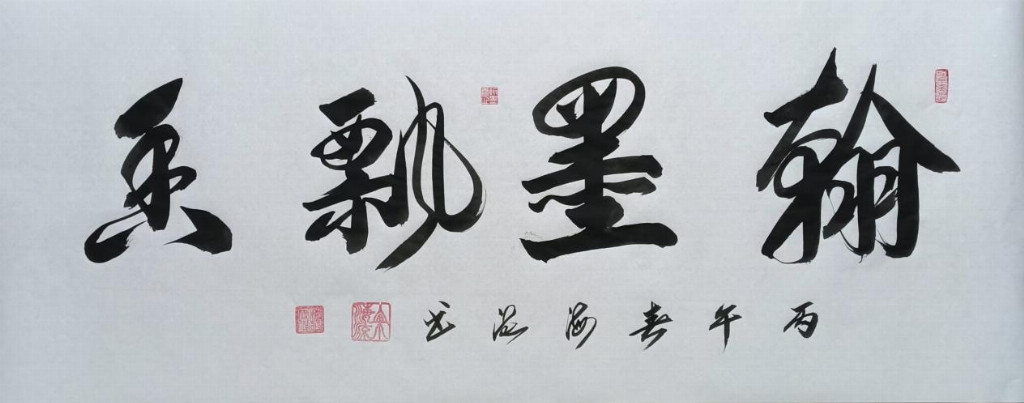 翰墨飘香
丙午春海波书